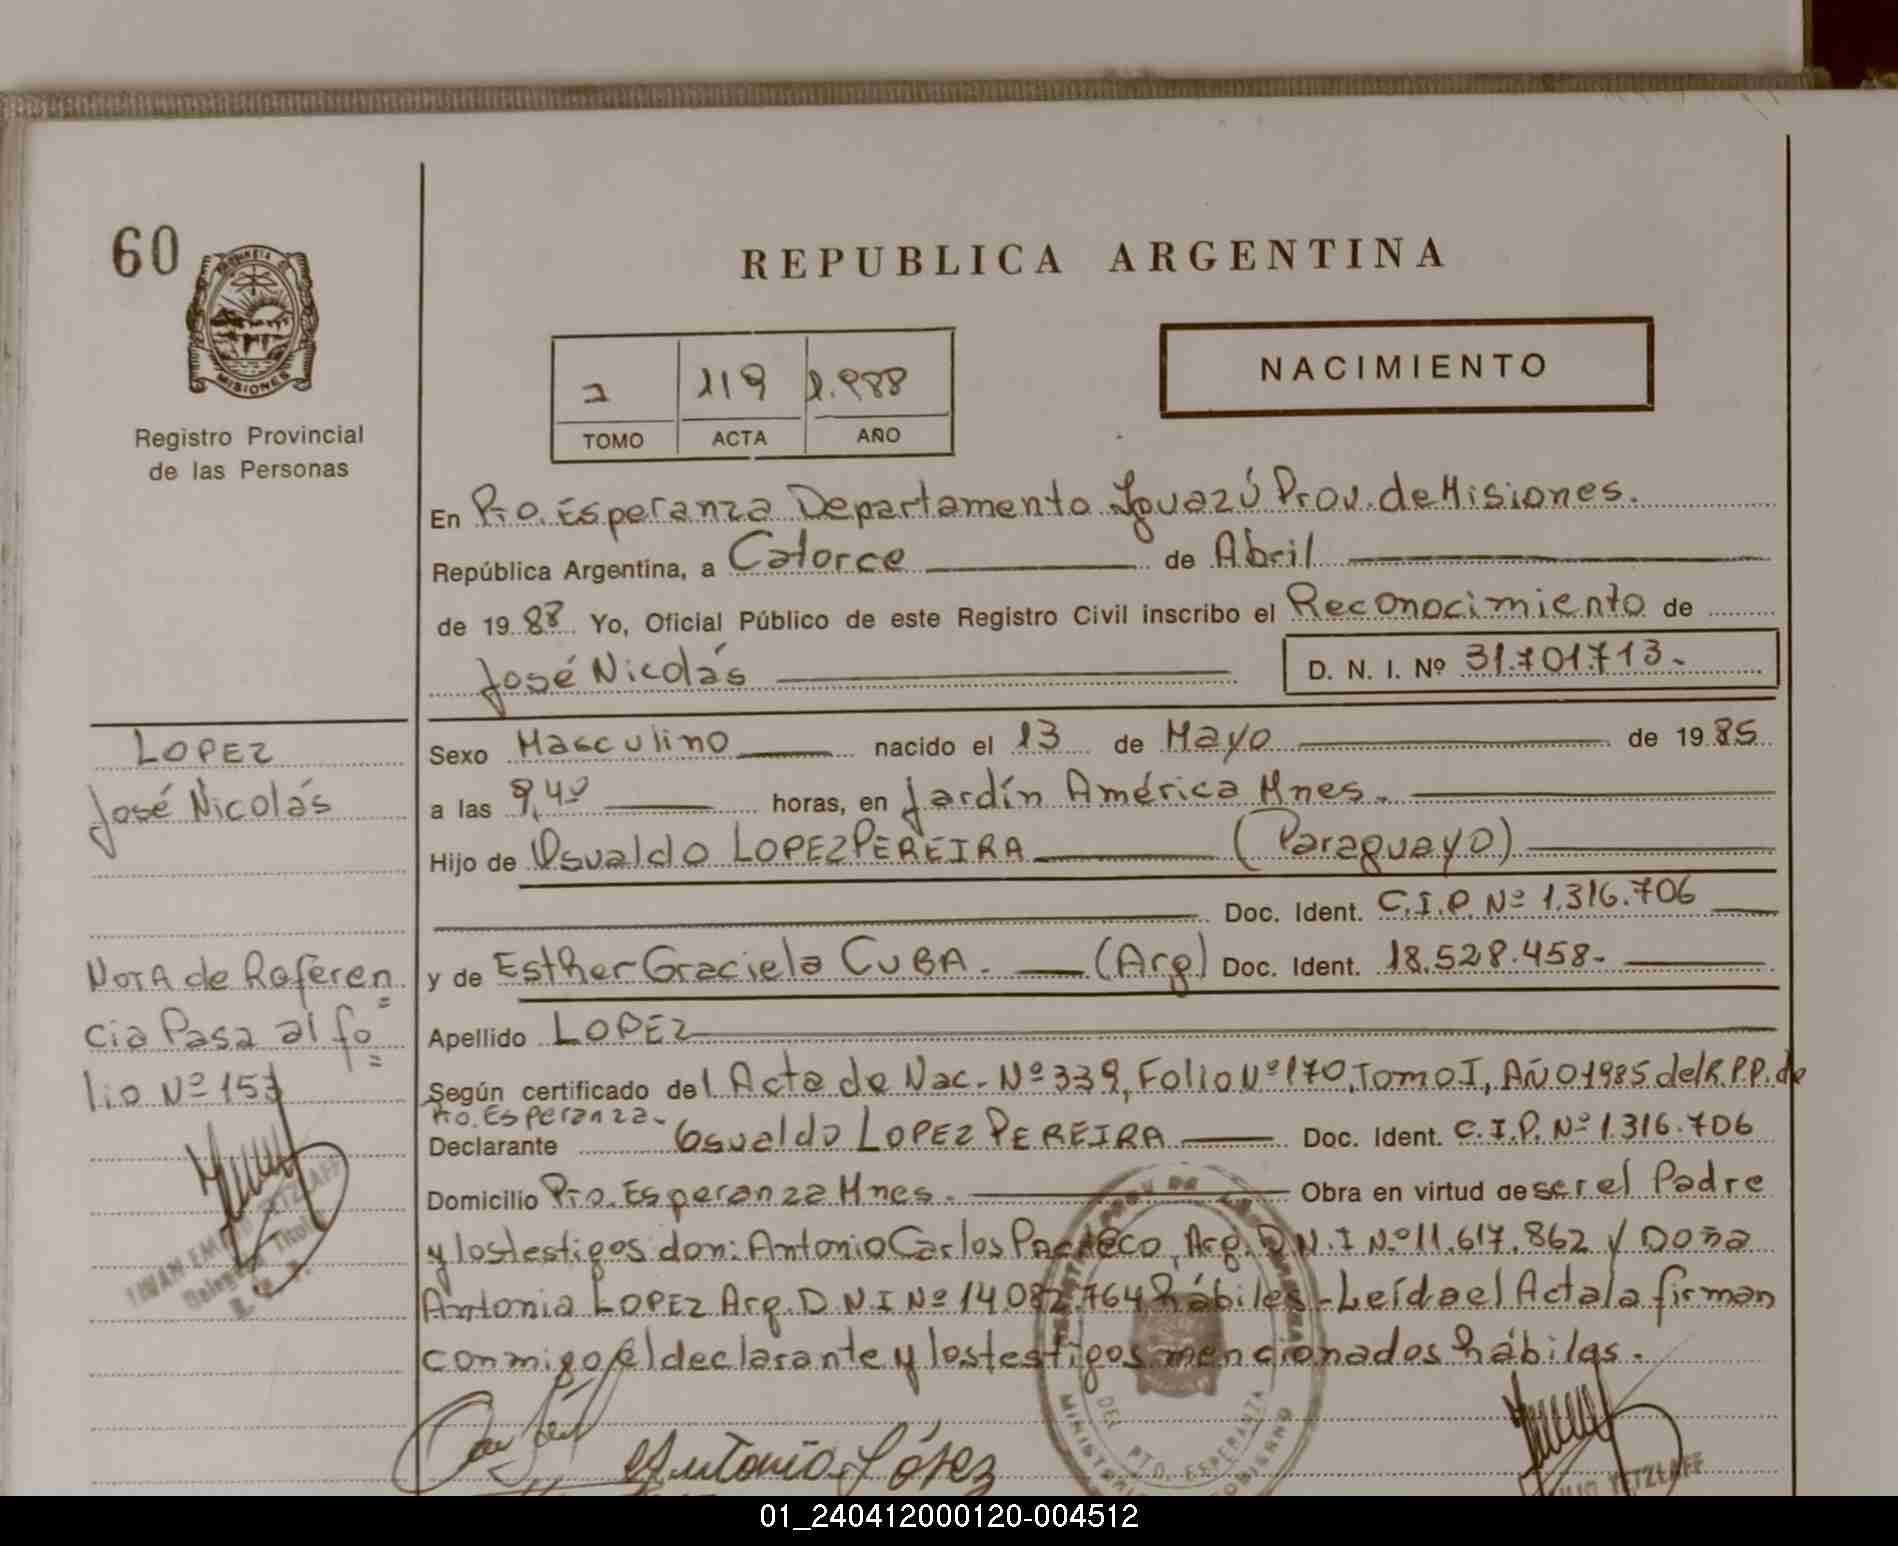 60
REPUBLICA ARGENTINA
MISIONES
Registro Provincial
de las Personas
119 1.988
TOMO ACTA AÑO
NACIMIENTO
En Pto. Esperanza Departamento Iguazú Prov. de Misiones.
República Argentina, a Catorce de Abril
de 19 88 Yo, Oficial Público de este Registro Civil inscribo el Reconocimiento de
José Nicolás D. N. I. Nº 31.701.713.-
LOPEZ
José Nicolás
Sexo Masculino nacido el 13 de Mayo de 19 85
a las horas, en Jardín América Mnes.
Hijo de Osvaldo LOPEZ PEREIRA (Paraguayo)
Doc. Ident. C.I.P. Nº 1.316.706
y de Esther Graciela CUBA. (Arg) Doc. Ident. 18.528.458.-
Apellido LOPEZ
Según certificado del Acta de Nac. Nº 339, Folio Nº 170, Tomo I, AÑO 1985 del R.P.P. de
Pto. Esperanza-
Declarante Osvaldo LOPEZ PEREIRA Doc. Ident. C.I.P. Nº 1.316.706
Domicilio Pto. Esperanza Mnes. Obra en virtud de ser el Padre
y los testigos don: Antonio Carlos Pacheco, Arg. D.N.I Nº 11.617.862 y Doña
Antonia LOPEZ Arg. D.N.I Nº 14.082.764 hábiles - Leída el Acta la firman
conmigo el declarante y los testigos mencionados hábiles.
NOTA de Referen
cia Pasa al fo
lio Nº 153
YETZLAFF
Titular
PTO. ESPERANZA
YETZLAFF
01_240412000120-004512